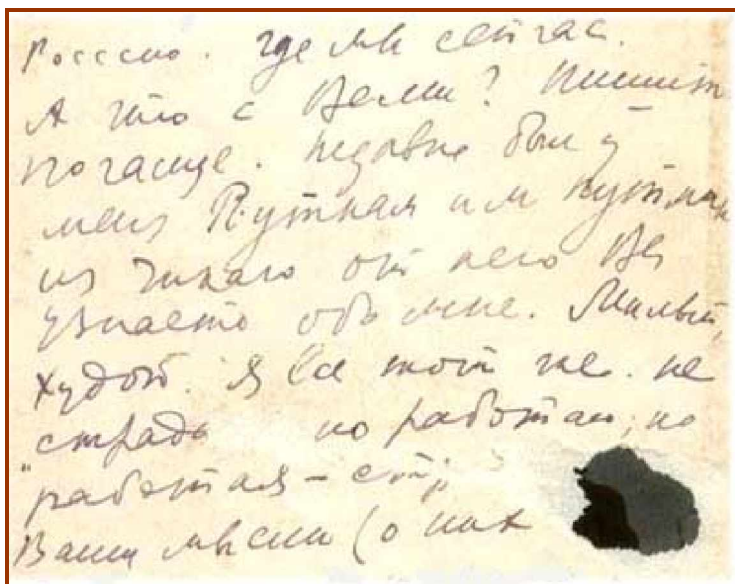 Россию. Где мы сейчас.
А что с Вами? Пишите
почаще. Недавно был у
меня Путнам или Путман
из Чикаго от него Вы
узнаете обо мне. Милый,
худой. Я все тот же. Не
страдаю но работаю; не
"работая –
Ваши мысли (о них